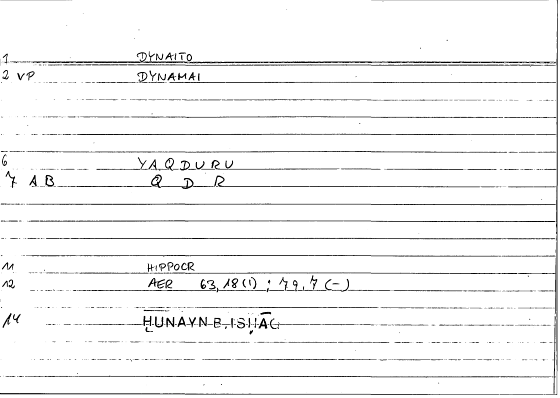 1 DYNAITO
2 VP DYNAMAI
6 YAQDURU
7 AB Q D R
11 HIPPOCR
12 AER 63,18(1) ; 79,7(-)
14 ḪUNAYN B. ISḤĀQ